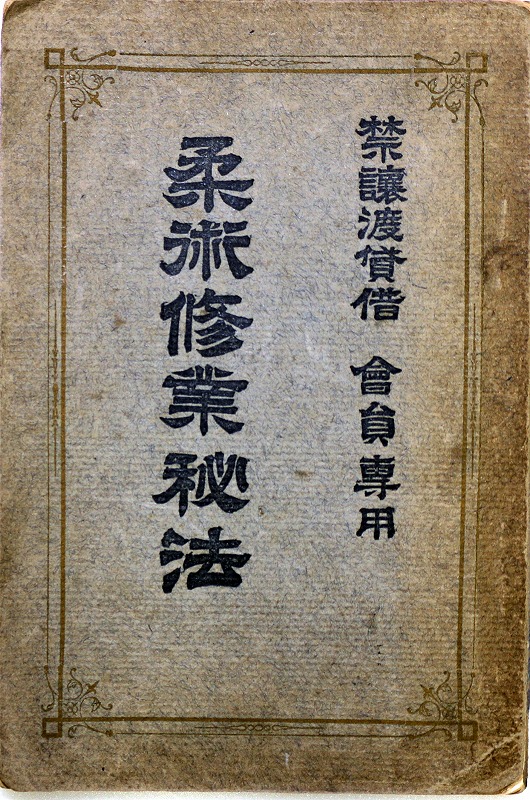 禁讓渡貸借　會員専用
柔術修業秘法